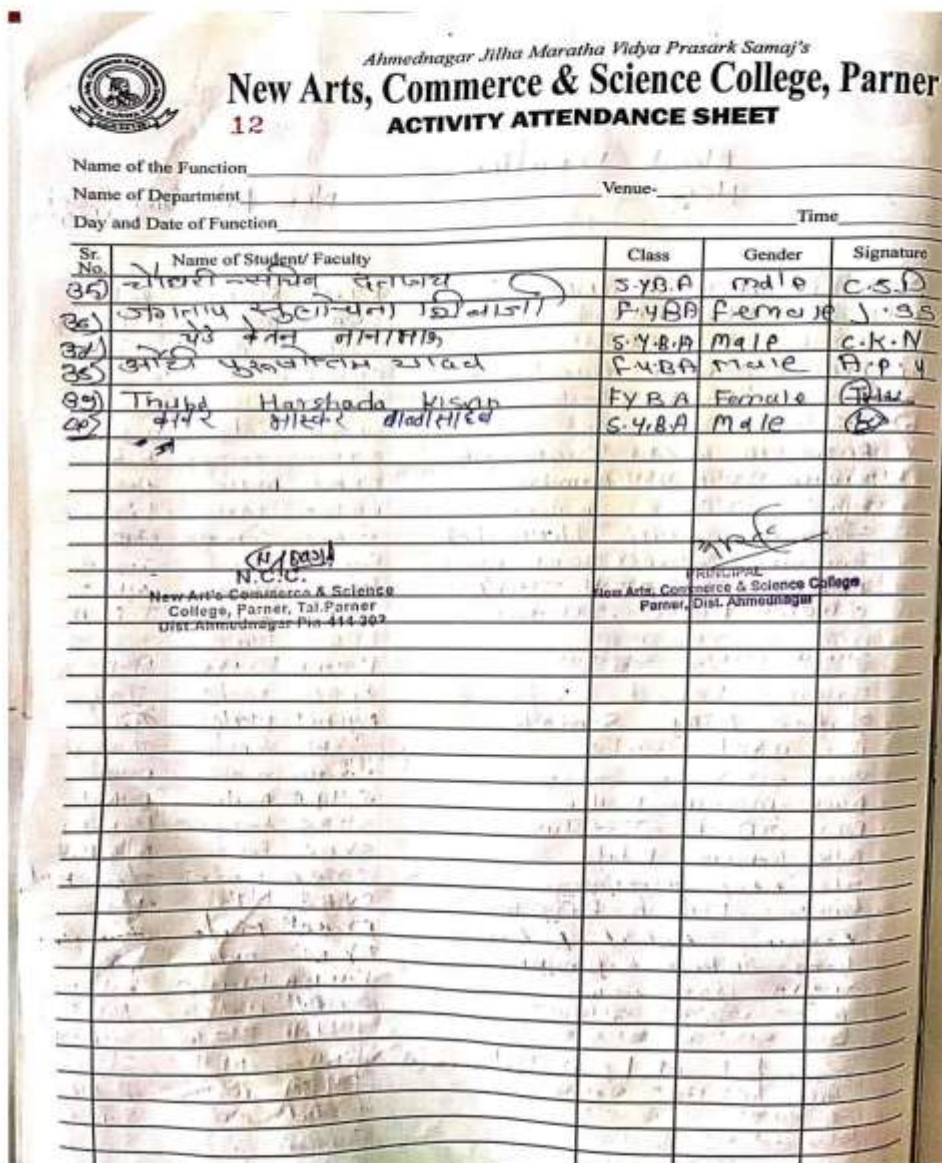 Ahmednagar Jilha Maratha Vidya Prasark Samaj's
New Arts, Commerce & Science College, Parner
12
ACTIVITY ATTENDANCE SHEET
Name of the Function
Name of Department Venue-
Day and Date of Function Time
Sr. No. Name of Student/ Faculty Class Gender Signature
चौधरी सचिन दत्तात्रय S.Y.B.A male C.S.D
जगताप सुलोचना शिवाजी F.YBA Female J.SS
चेडे केतन S.Y.B.A male C.K.N
औटी पुरुषोत्तम यादव F.Y.BA male A.P.Y
Thube Harshada Kisan FYBA Female
कावरे भास्कर बाळासाहेब S.Y.B.A Male
N.C.C.
New Art's Commerce & Science
College, Parner, Tal.Parner
Dist.Ahmednagar Pin 414 302
PRINCIPAL
New Arts, Commerce & Science College
Parner, Dist. Ahmednagar